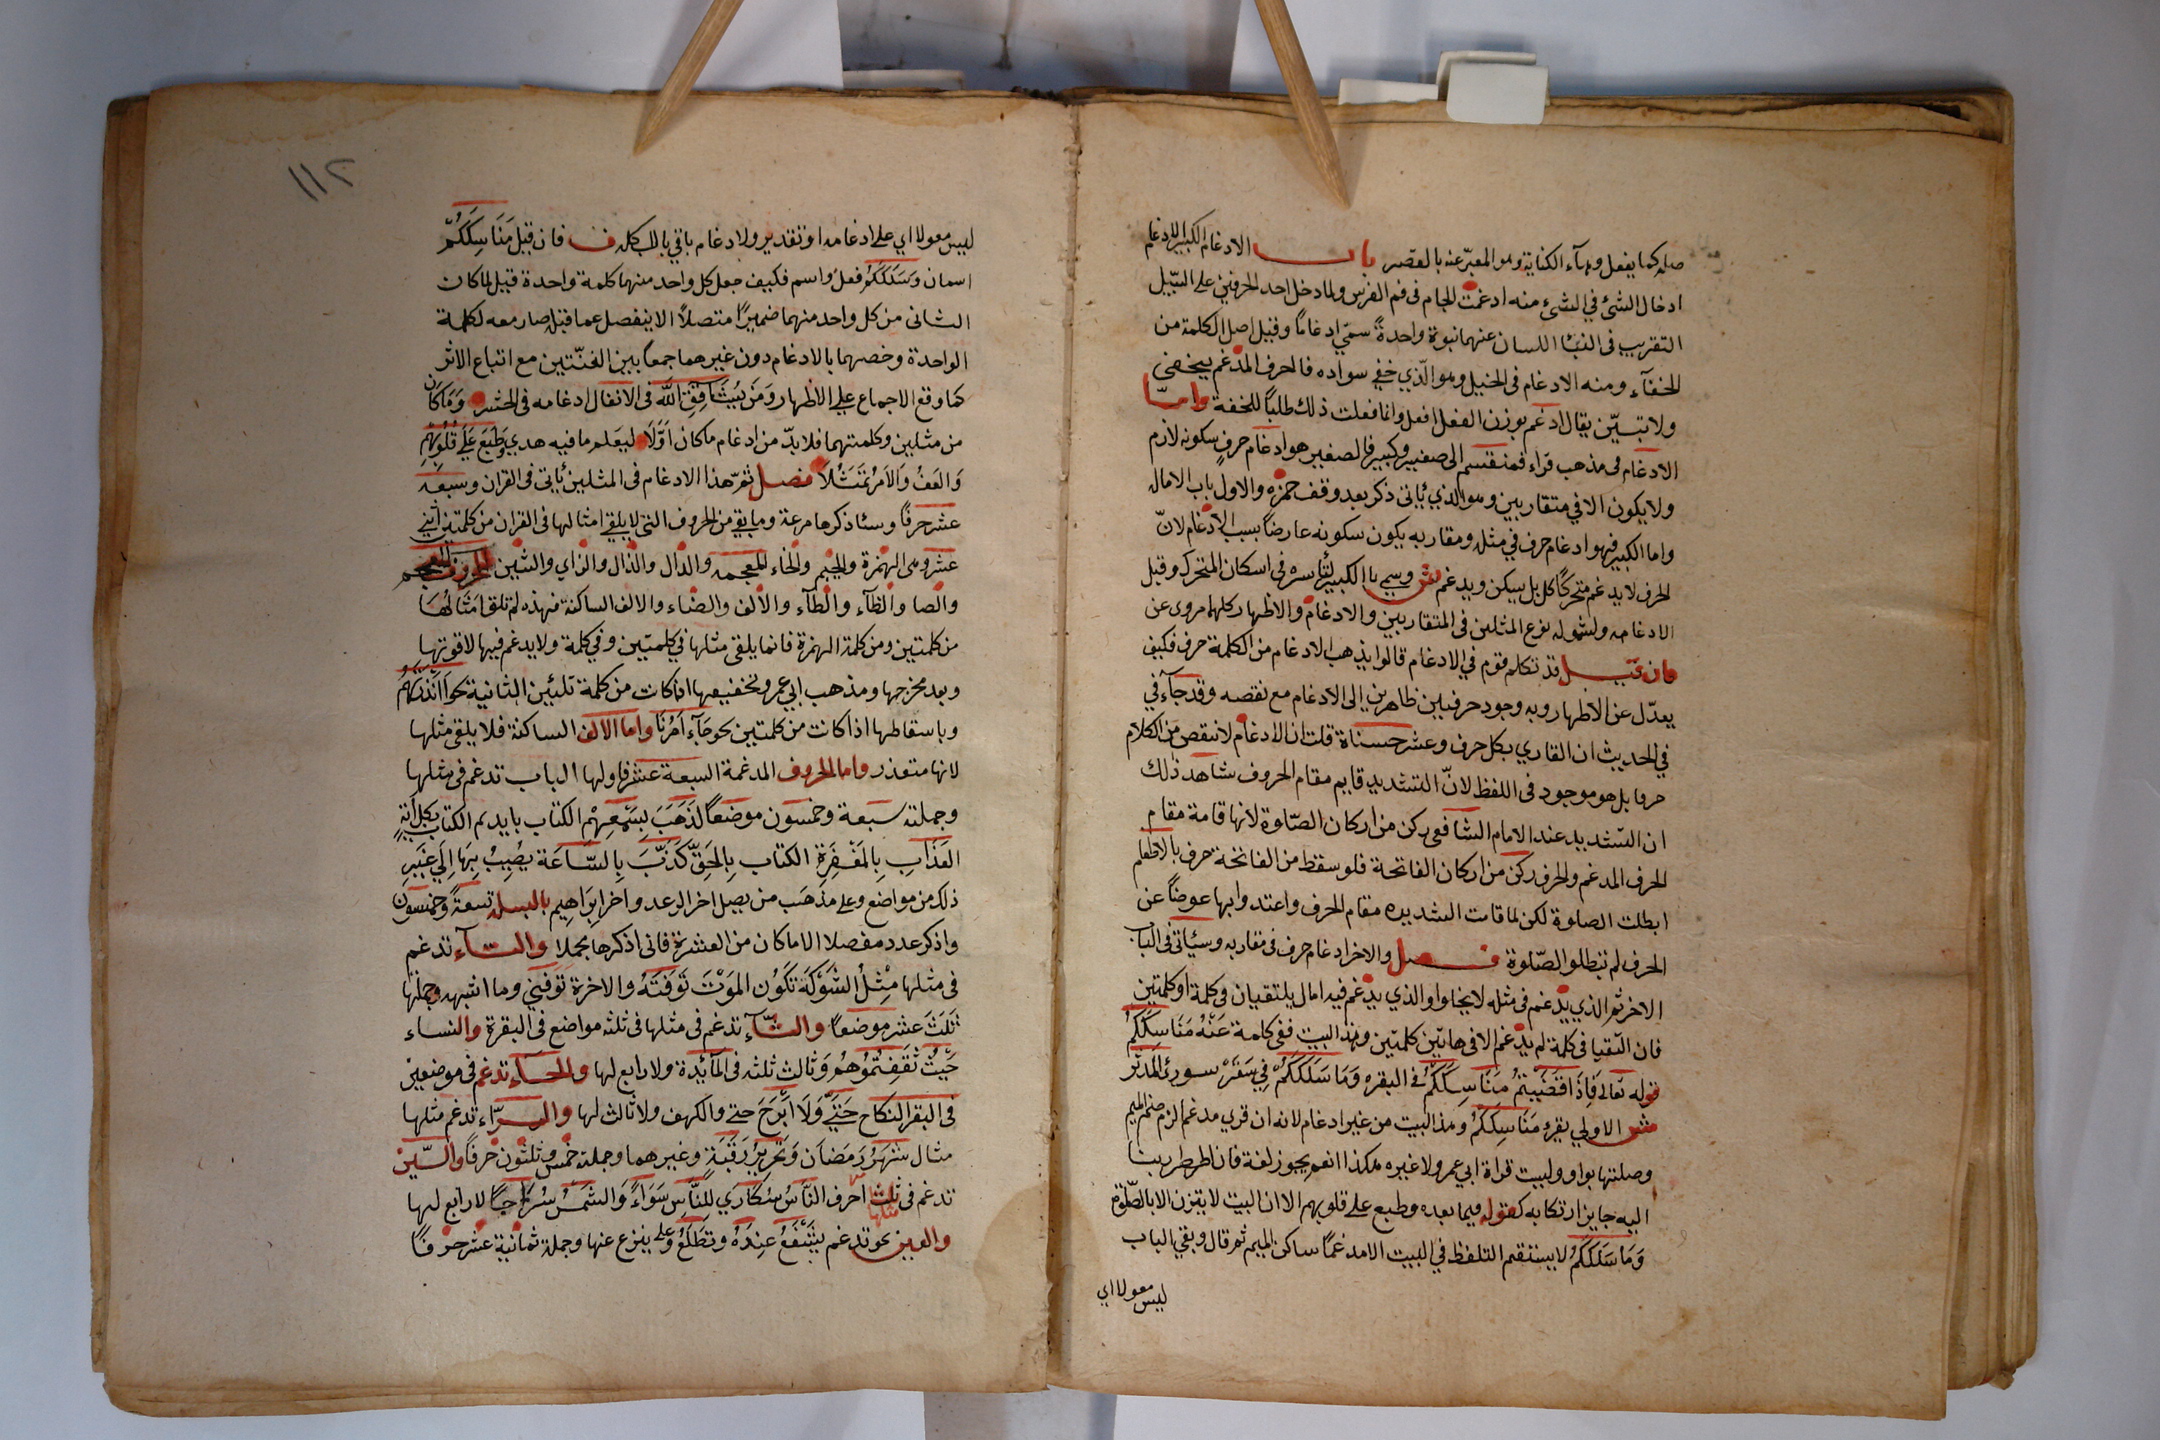 صله كما يفعل وهاء الكناية وهو المعبّر عنه بالقصر باب الادغام الكبير الادغام
ادخال الشئ في الشئ منه ادغمت اللجام فى فم الفرس ولما دخل احد الحرفين على السبيل
التقريب فى النبأ اللسان عنهما نبوة واحدةً سمّي ادغاماً وقيل اصل الكلمة من
الخفآء ومنه الادغام فى الخيل وهو الّذي خفي سواده فالحرف المدغم يخفى
ولا تبيّن يقال ادغم بوزن الفعل افعل وانما فعلت ذلك طلباً للخفة واما
الادغام فى مذهب قراء فمنقسم الى صغير وكبير فالصغير هو ادغام حرفٍ سكونه لازم
ولا يكون الا في متقاربين وهو الذي يأتى ذكر بعد وقف حمزه والاول باب الاماله
واما الكبير فهو ادغام حرف في مثله ومقاربه يكون سكونه عارضاً بسبب الادغام لانّ
الحرف لا يدغم متحركاً كل بل سيكن ويدغم ش وسمي بالكبير لتأسره فى اسكان المتحرك وقبل
الادغامه ولشموله نوع المثلين فى المتقاربين والادغام والاظهار كلهما مروى عن
فان قيل قد تكلم قوم في الادغام قالوا يذهب الادغام من الكلمة حرف فكيف
يعدّل عن الاظهار وبه وجود حرفين ظاهرين الى الادغام مع نقصه وقد جآء في
في الحديث ان القاري بكل حرف وعشر حسناة قلت ان الادغام لا نقص من الكلام
حرفا بل هو موجود فى اللفظ لانّ التشديد قايم مقام الحروف شاهد ذلك
ان التشديد عند الامام الشافعى ركن من اركان الصّلوة لانها قامة مقام
الحرف المدغم والحرف ركن من اركان الفاتحة فلو سقط من الفاتحة حرف بالاظهام
ابطلت الصلوة لكن لما قامت التشديده مقام الحرف واعتدوا بها عوضاً عن
الحرف لم تبطلو الصّلوة فصل والاخر ادغام حرف فى مقاربه وسيأتى فى الباب
الاخر ثم الذي يدغم فى مثله لا يخلوا والذي يدغم فيه اما ل يلتقيان فى كلمة او كلمتين
فان التقيا فى كلمة لم يدغم الا فى هاتين كلمتين وهذ البيت ففى كلمة عَنْهُ مَنَاسِكَكُمْ
قوله تعالى فَاِذَا قَضَيْتُمْ مَنَاسِكَكُمْ فى البقره وَمَا سَلَكَكُمْ فِي سَقَرَ سورة المدثر
ش الاولى يقرو مَنَاسِكَكُمْ وهذا البيت من غير ادغام لانه ان قري مدغم لزم ضم الميم
وصلتها بواو وليت قراة ابي عمر ولا غيره هكذا انعم يجوز لغة فان اظرطر بنا
اليه جايز ارتكابه كقوله فيما بعده وطبع على قلوبهم الا ان البيت لا يتزن الا بالصّلوة
وَمَا سَلَكَكُمْ لا يستقم التلفظ في البيت الا مدغماً ساكن الميم ثم قال وبقي الباب
ليس معولا اي
١١٢
ليس معولا اي على ادغامه او تقدير ولا دغام باقي باب كله ف فان قيل مَنَاسِكَكُمْ
اسمان وَسَلَكَكُمْ فعلٌ واسم فكيف جعل كل واحد منهما كلمة واحدة قيل لما كان
الثانى من كل واحد منهما ضميرًا متصلاً الا ينفصل عما قبله صار معه لكلمة
الواحدة وخصهما بالادغام دون غيرهما جمعاً بين الغنّتين مع اتباع الاثر
كما وقع الاجماع على الاظهار وَمَنْ يُشَاقِقِ اللّٰه فى الانفال ادغامه فى الحشر وَمَا كَانَ
من مثلين وكلمتهما فلا بدّ من ادغام ما كان اوّلَا ليعلم ما فيه هدي وَطُبِعَ عَلَى قُلُوبِهِمْ
وَالعَفْ وَالاَمْرُ تَمَثَّلاَ فصل ثمّ هذا الادغام فى المثلين يأتى فى القران وسبعه
عشر حرفًا وسئاذكرها مرعة وما بقي من الحروف التى لا يلقي امثالها فى القران من كلمتين اثني
عشر ومى الهمزة والجيم والخاء المعجمه والدّال والذّال والزاي والشين الحروف المعجم
والصا والظآء والطآء والألف والضاء والالف الساكنة فهذه لم تلق امثالهَا
من كلمتين ومن كلمة الهمزة فانما يلقى مثلها في كلمتين وفي كلمة ولا يدغم فيها لاقوتها
وبعد مخرجها ومذهب ابي عمر وتخفيفها اذا كات من كلمة تليئن الثانية نحو أَأَنْذَرْتَهُمْ
وباسقاطها اذا كانت من كلمتين نحو جَآءَ اَمْرُنَا واما الالف الساكنة فلا يلقى مثلها
لانها متعذر واما الحروف المدغمة السبعة عشر فاولها الباب تدغم فى مثلها
وجملته سبعة وخمسون موضعاً لَذَهَبَ بِسَمْعِهِمْ الكتاب بايديهم الكتاب بكل اَيةٍ
العَذَابِ بِالمَغْفِرَةِ الكتاب بِالحَقِّ كَذَّبَ بِالسَّاعَة يصِيبُ بِهَا اِلَى غَيرِ
ذلك من مواضع وعلى مَذهَب من يصل اخر الرعد واخر ابراهيم بالبسلمه تسعةً وخمسون
واذكر عدد مفصلا الا ما كان من العشرة فانى اذكرها مجملا والتآء تدغم
فى مثلها مِثْل الشَوْكَة تَكُون المَوْتَ تَوَفَتَهُ والاخرة تَوَفَنِي وما اشبهه وجملتها
ثَلَثَ عشر موضعاً والثّآء تدغم فى مثلها فى ثلثه مواضع فى البقرة والنساء
حَيْثُ ثَقِفْتُمُوْهُمْ وَثالث ثلثه فى المائدة ولا رابع لها والحآء تدغم فى موضعين
فى البقر النكاح حَتَّى وَلَا اَبْرَحَ حتى والكهف ولا ثالث لها والرّاء تدغم مثلها
مثال شَهْرُ رَمَضَان وَتَحْرِيرُ رَقَبَةٍ وغيرهما وجملته خمس وثلثون حرفاً والسّين
تدغم فى مثلها ثلث احرف النّاسُ سُكَارَي للنّاسِ سَوَاءً وَالشمْسُ سُرَاجاً لا رابع لها
والعين نحو تدغم يَشْفَعُ عِنْدَهُ وَتَطَّلِعُ وَعَلى ينزع عنها وجملة ثمانية عشر حرفًا